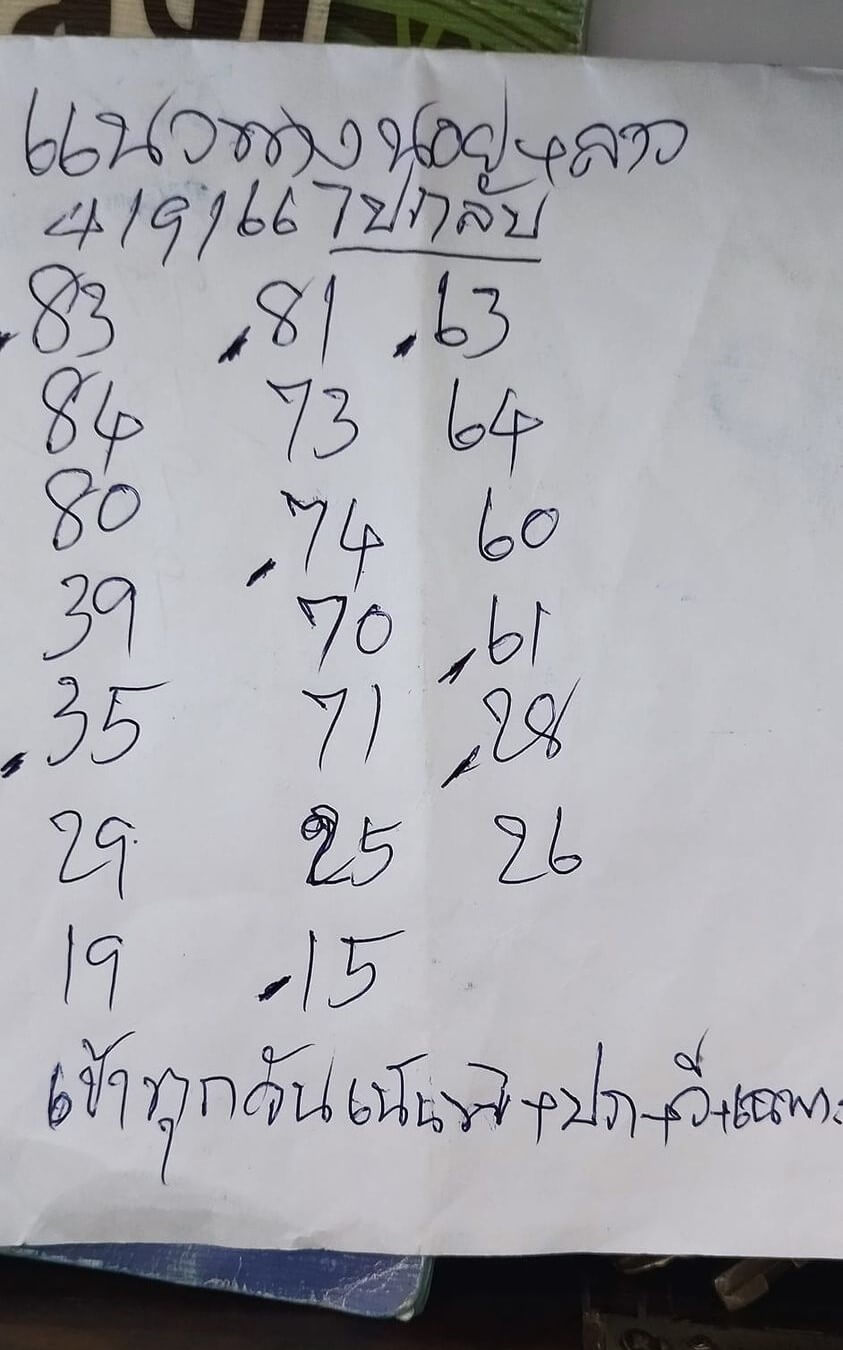 แนวทางนอยู่+ลาว
4/9/66 ไปกลับ
.83 .81 .63
84 73 64
80 .74 60
39 70 .61
.35 71 .28
29 25 26
19 .15
เข้าทุกวันเน้น +ปภ+วี+เฉพาะ